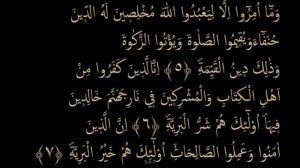 وَمَا أُمِرُوا إِلَّا لِيَعْبُدُوا اللهَ مُخْلِصِينَ لَهُ الدِّينَ
حُنَفَاءَ وَيُقِيمُوا الصَّلَوةَ وَيُؤْتُوا الزَّكَوةَ
وَذَلِكَ دِينُ الْقَيِّمَةِ ﴿٥﴾ إِنَّ الَّذِينَ كَفَرُوا مِنْ
أَهْلِ الْكِتَابِ وَالْمُشْرِكِينَ فِي نَارِ جَهَنَّمَ خَالِدِينَ
فِيهَا أُولَئِكَ هُمْ شَرُّ الْبَرِيَّةِ ﴿٦﴾ إِنَّ الَّذِينَ
آمَنُوا وَعَمِلُوا الصَّالِحَاتِ أُولَئِكَ هُمْ خَيْرُ الْبَرِيَّةِ ﴿٧﴾